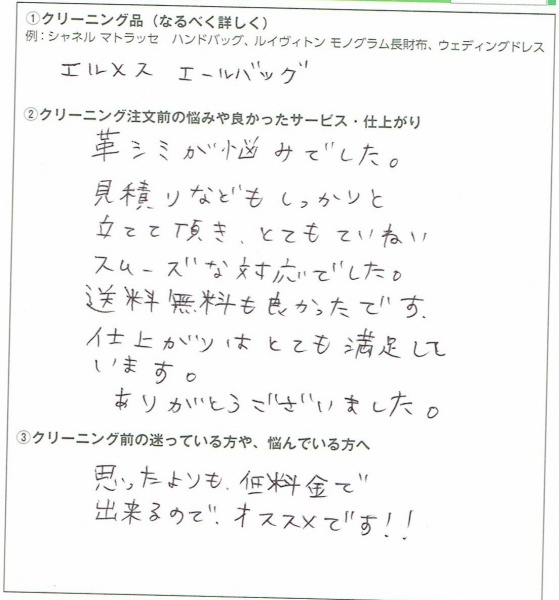 ①クリーニング品（なるべく詳しく）
例：シャネル マトラッセ　ハンドバッグ、ルイヴィトン モノグラム長財布、ウェディングドレス
エルメス エールバッグ
②クリーニング注文前の悩みや良かったサービス・仕上がり
革シミが悩みでした。
見積りなどもしっかりと
立てて頂き、とてもていねい
スムーズな対応でした。
送料無料も良かったです、
仕上がりはとても満足して
います。
ありがとうございました。
③クリーニング前の迷っている方や、悩んでいる方へ
思ったよりも、低料金で
出来るので、オススメです!!